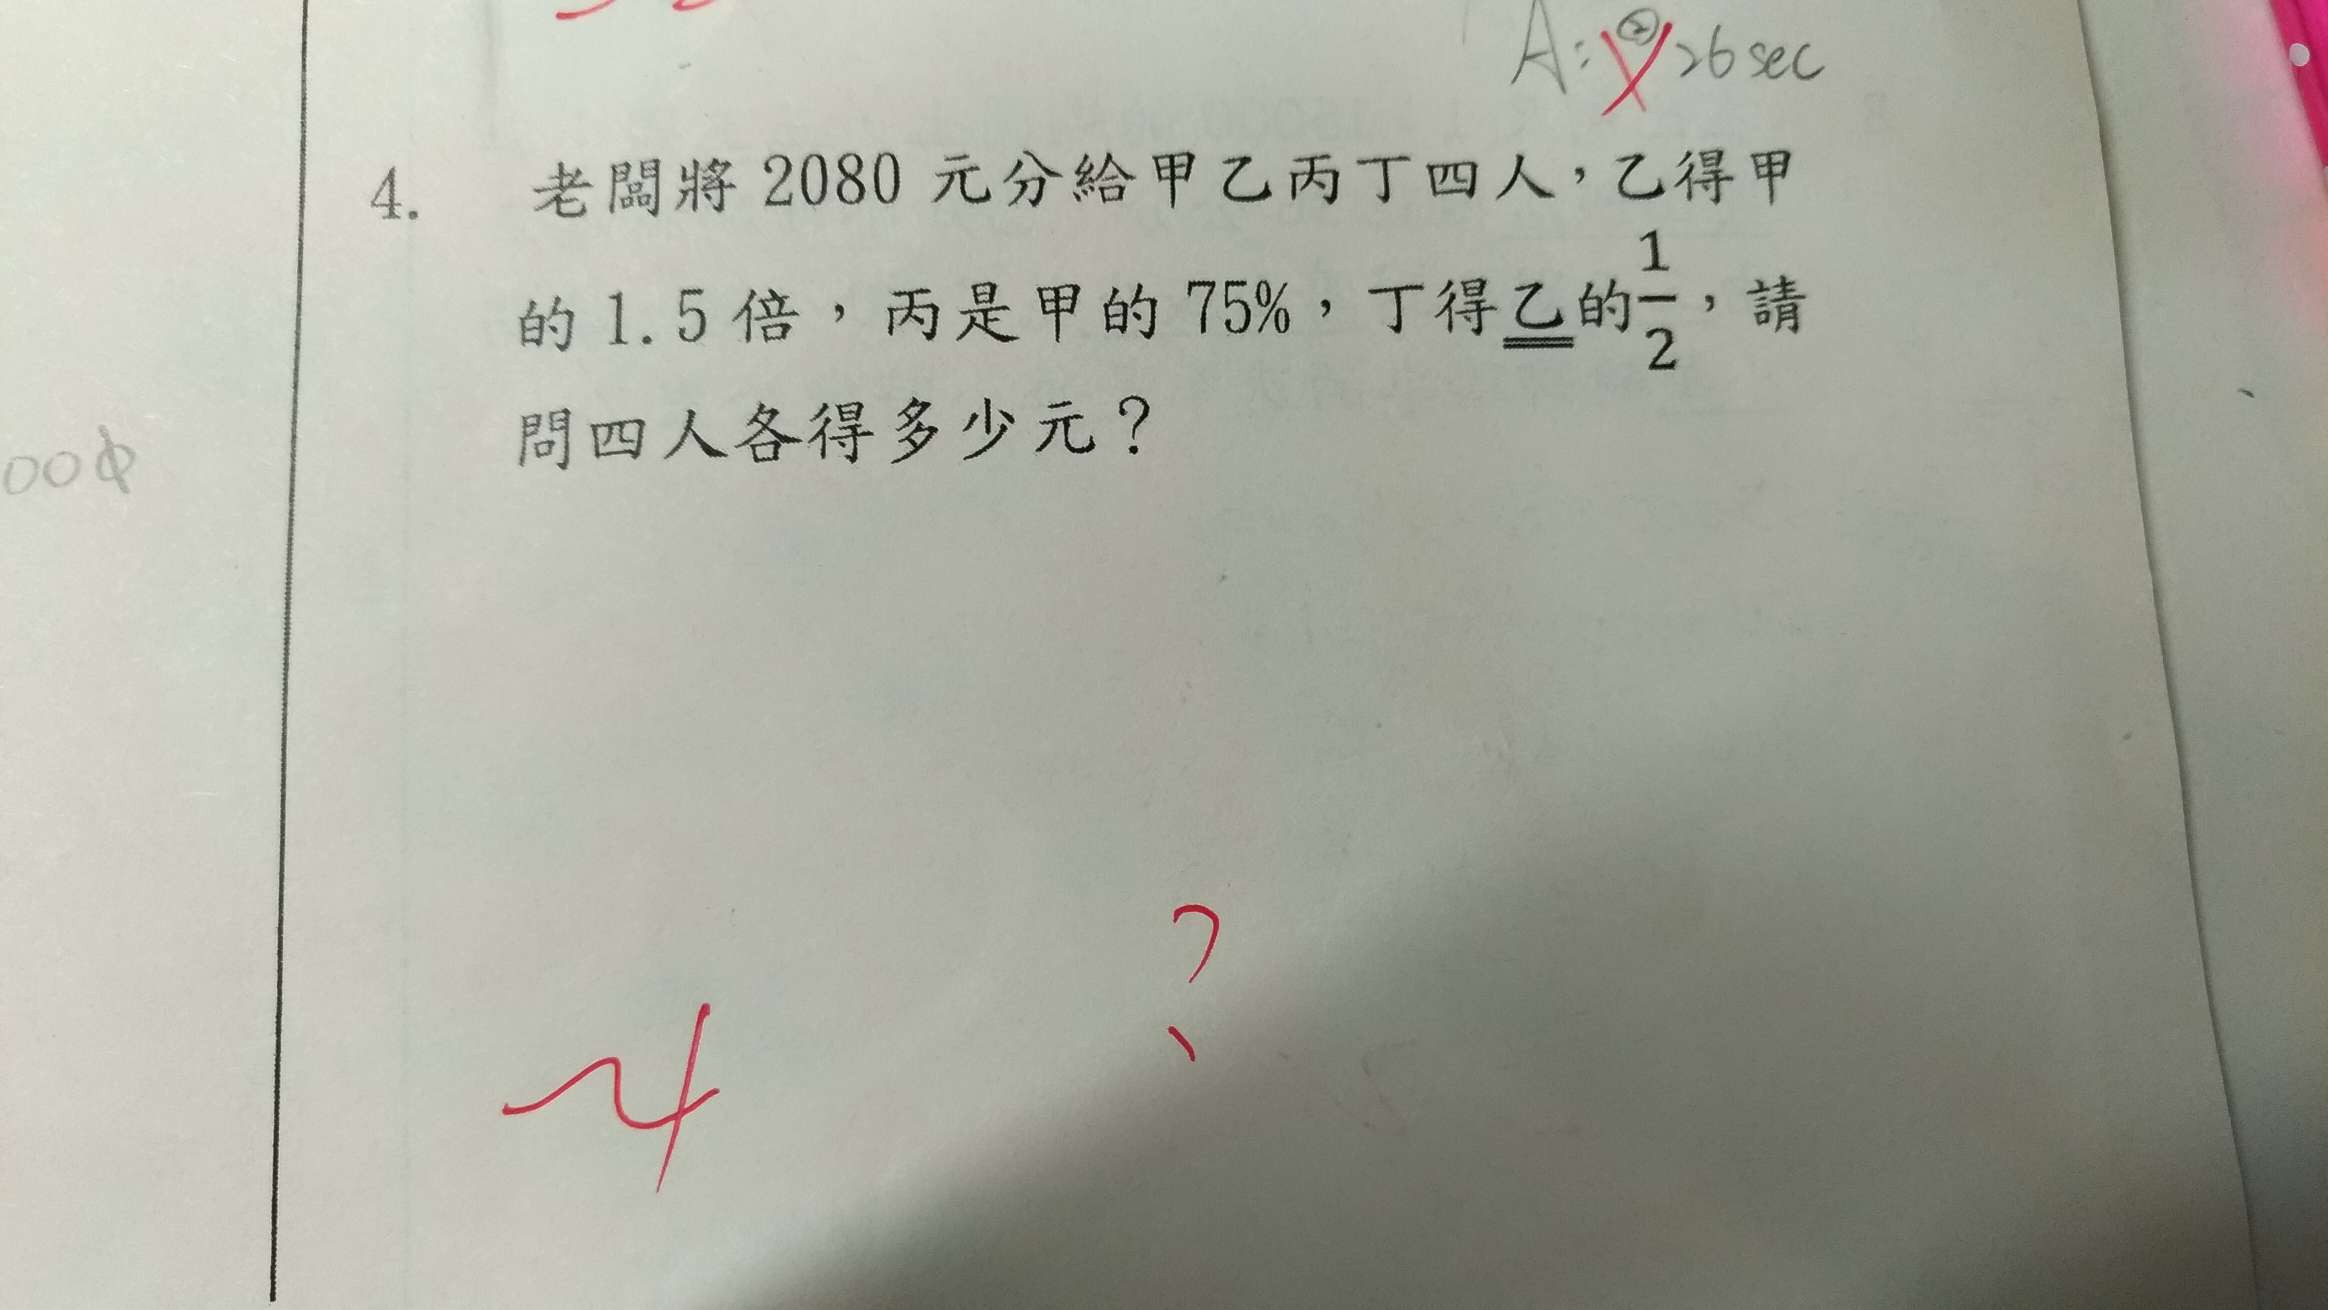 A: ② 26 sec
4. 老闆將 2080 元分給甲乙丙丁四人，乙得甲
的 1.5 倍，丙是甲的 75%，丁得乙的1/2，請
問四人各得多少元？
00
?